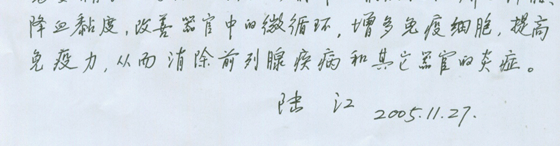 降血黏度,改善器官中的微循环,增多免疫细胞,提高
免疫力,从而消除前列腺疾病和其它器官的炎症。
陆江 2005.11.27.